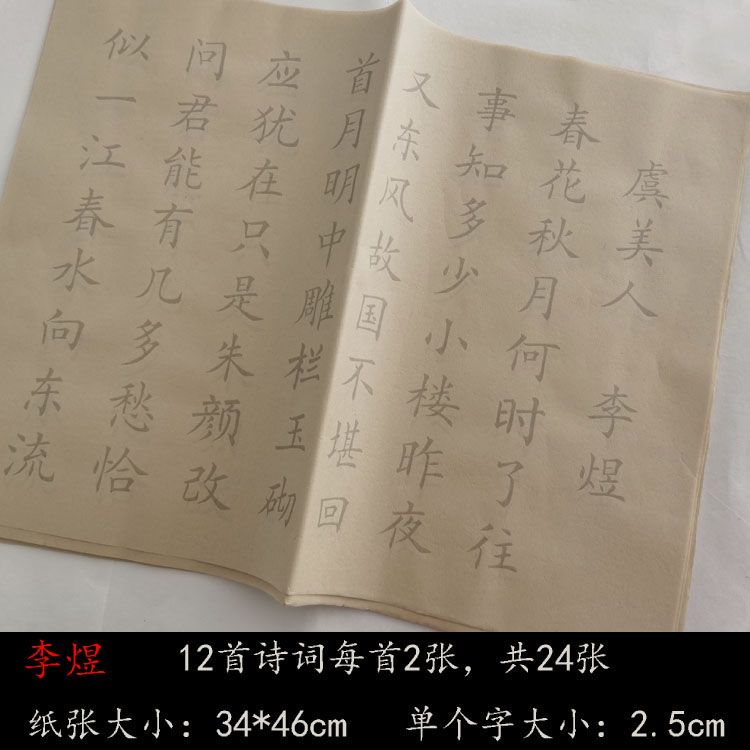 虞美人 李煜
春花秋月何时了往
事知多少小楼昨夜
又东风故国不堪回
首月明中雕栏玉砌
应犹在只是朱颜改
问君能有几多愁恰
似一江春水向东流
李煜 12首诗词每首2张，共24张
纸张大小：34*46cm 单个字大小：2.5cm